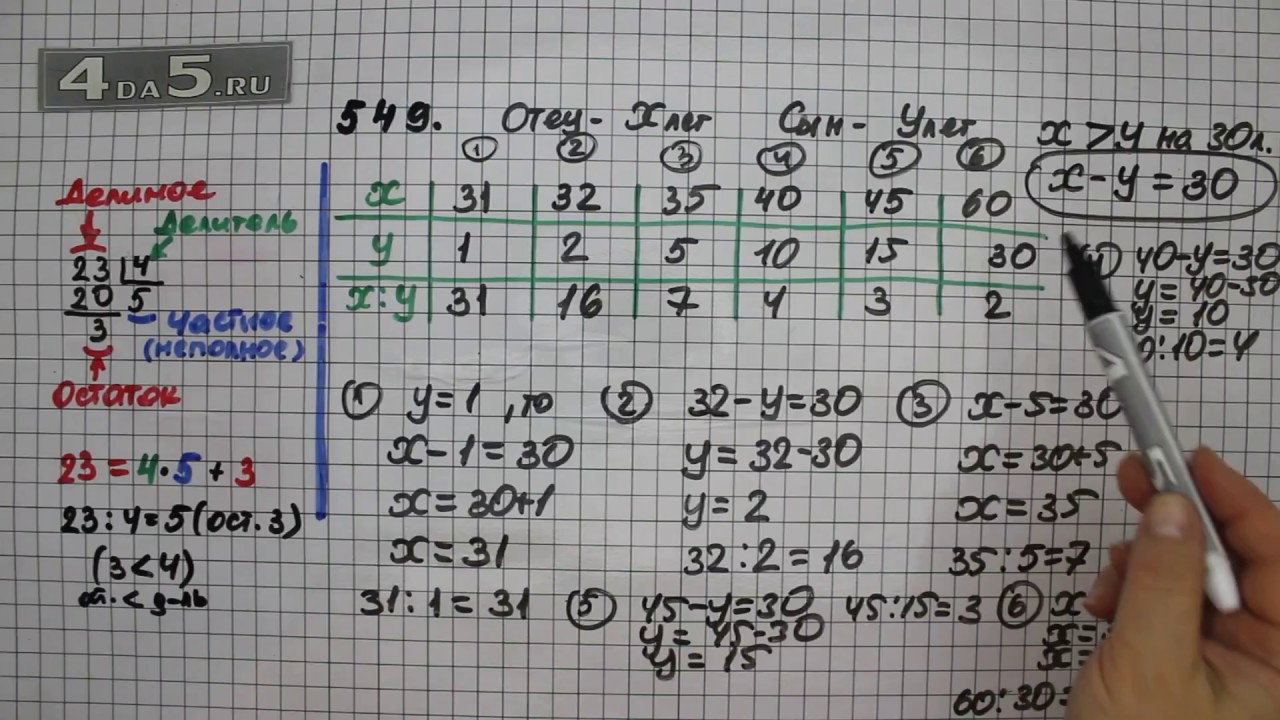 4DA5.RU
549. Отец - X лет Сын - Y лет
① ② ③ ④ ⑤ ⑥
x 31 32 35 40 45 60
y 1 2 5 10 15 30
x:y 31 16 7 4 3 2
x > y на 30 л.
x - y = 30
Делимое
Делитель
23 4
20 5
3
Частное
(неполное)
Остаток
23 = 4·5 + 3
23 : 4 = 5 (ост. 3)
(3 < 4)
ост. < д-ль
① y = 1, то
x - 1 = 30
x = 30+1
x = 31
31 : 1 = 31
② 32 - y = 30
y = 32-30
y = 2
32 : 2 = 16
③ x - 5 = 30
x = 30+5
x = 35
35 : 5 = 7
40-y=30
y = 40-30
y = 10
:10=4
⑤ 45-y=30 45:15=3
y = 45-30
y = 15
⑥ x
x=
x=
60:30=